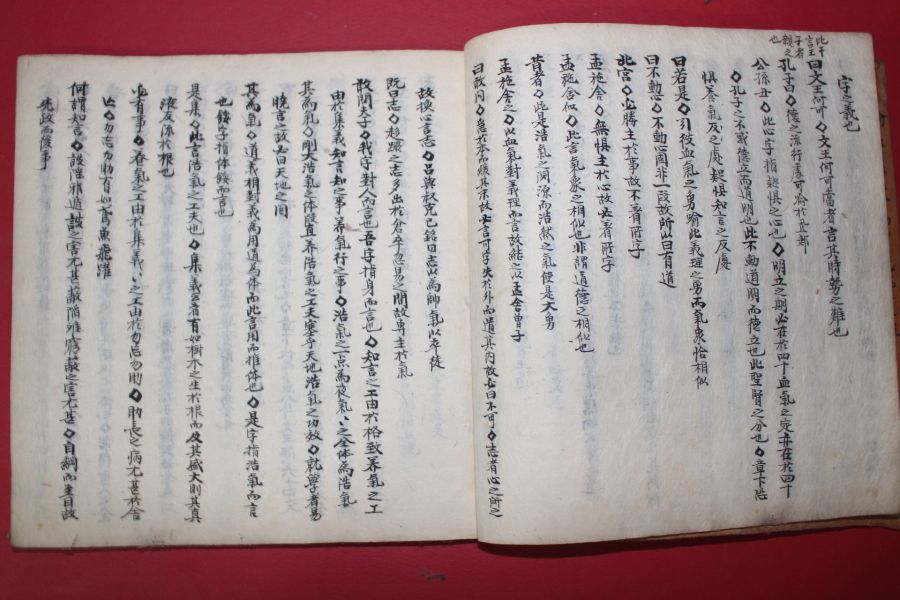 此干
言王
子者
親之
也
字之義也
曰文王何可◇文王何可當者言其時勢之難也
孔子曰◇德之流行處可冷於丑部
公孫丑◇此心字指疑惧之心也◇明立之期必在於四十血氣之定亦在於四十
◇孔子之不惑德立而道明也此不動道明而德立也此聖賢之分也◇章下
惧◇養氣反之處疑惧知言之反處
曰若是◇引彼血氣之勇喻此義理之勇而氣象恰相似
曰不動心◇不動心固非一段故所以曰有道
北宮◇必勝主於事故不著所字
孟施舍◇無惧主於心故必著所字
孟施舍似◇此言氣象之相似也非謂道德之相似也
昔者◇此是浩氣之淵源而浩然之氣便是大勇
孟施舍之◇以血氣對義理而言故結之以孟舍曾子
曰敢問◇急於本而緩其末故必言可字失於外而遺其內故必曰不可◇志者心之所之
故換心言志◇呂與叔克己銘曰志以為帥氣以卒徒
既曰志◇趨蹶之志多出於倉卒忽易之間故專主於氣
敢問夫子◇我字對人而言也吾字指身而言也◇知言之工由於格致養氣之工
由於集義知言知之事養氣行之事◇浩氣之一点為夜氣〻之全体為浩氣
其為氣◇剛大浩氣之体段直養浩氣之工夫塞乎天地浩氣之功效◇就學者易
曉言之故必曰天地之間
其為氣◇道義相對義為用道為体而此言用而推体也◇是字指浩氣而言
也餒字指体餒而言也
是集◇此言浩氣之工夫也◇集義者有如樹木之生於根而及其盛大則其真
液反流於根也
必有事◇養氣之工由於集義〻之工由於勿忘勿助◇助長之病尤甚於舍
也◇勿忘勿助有如鳶魚飛躍
何謂知言◇詖淫邪遁詖之害尤甚蔽陷離窮蔽之害尤甚◇自綱而至目故
先政而後事